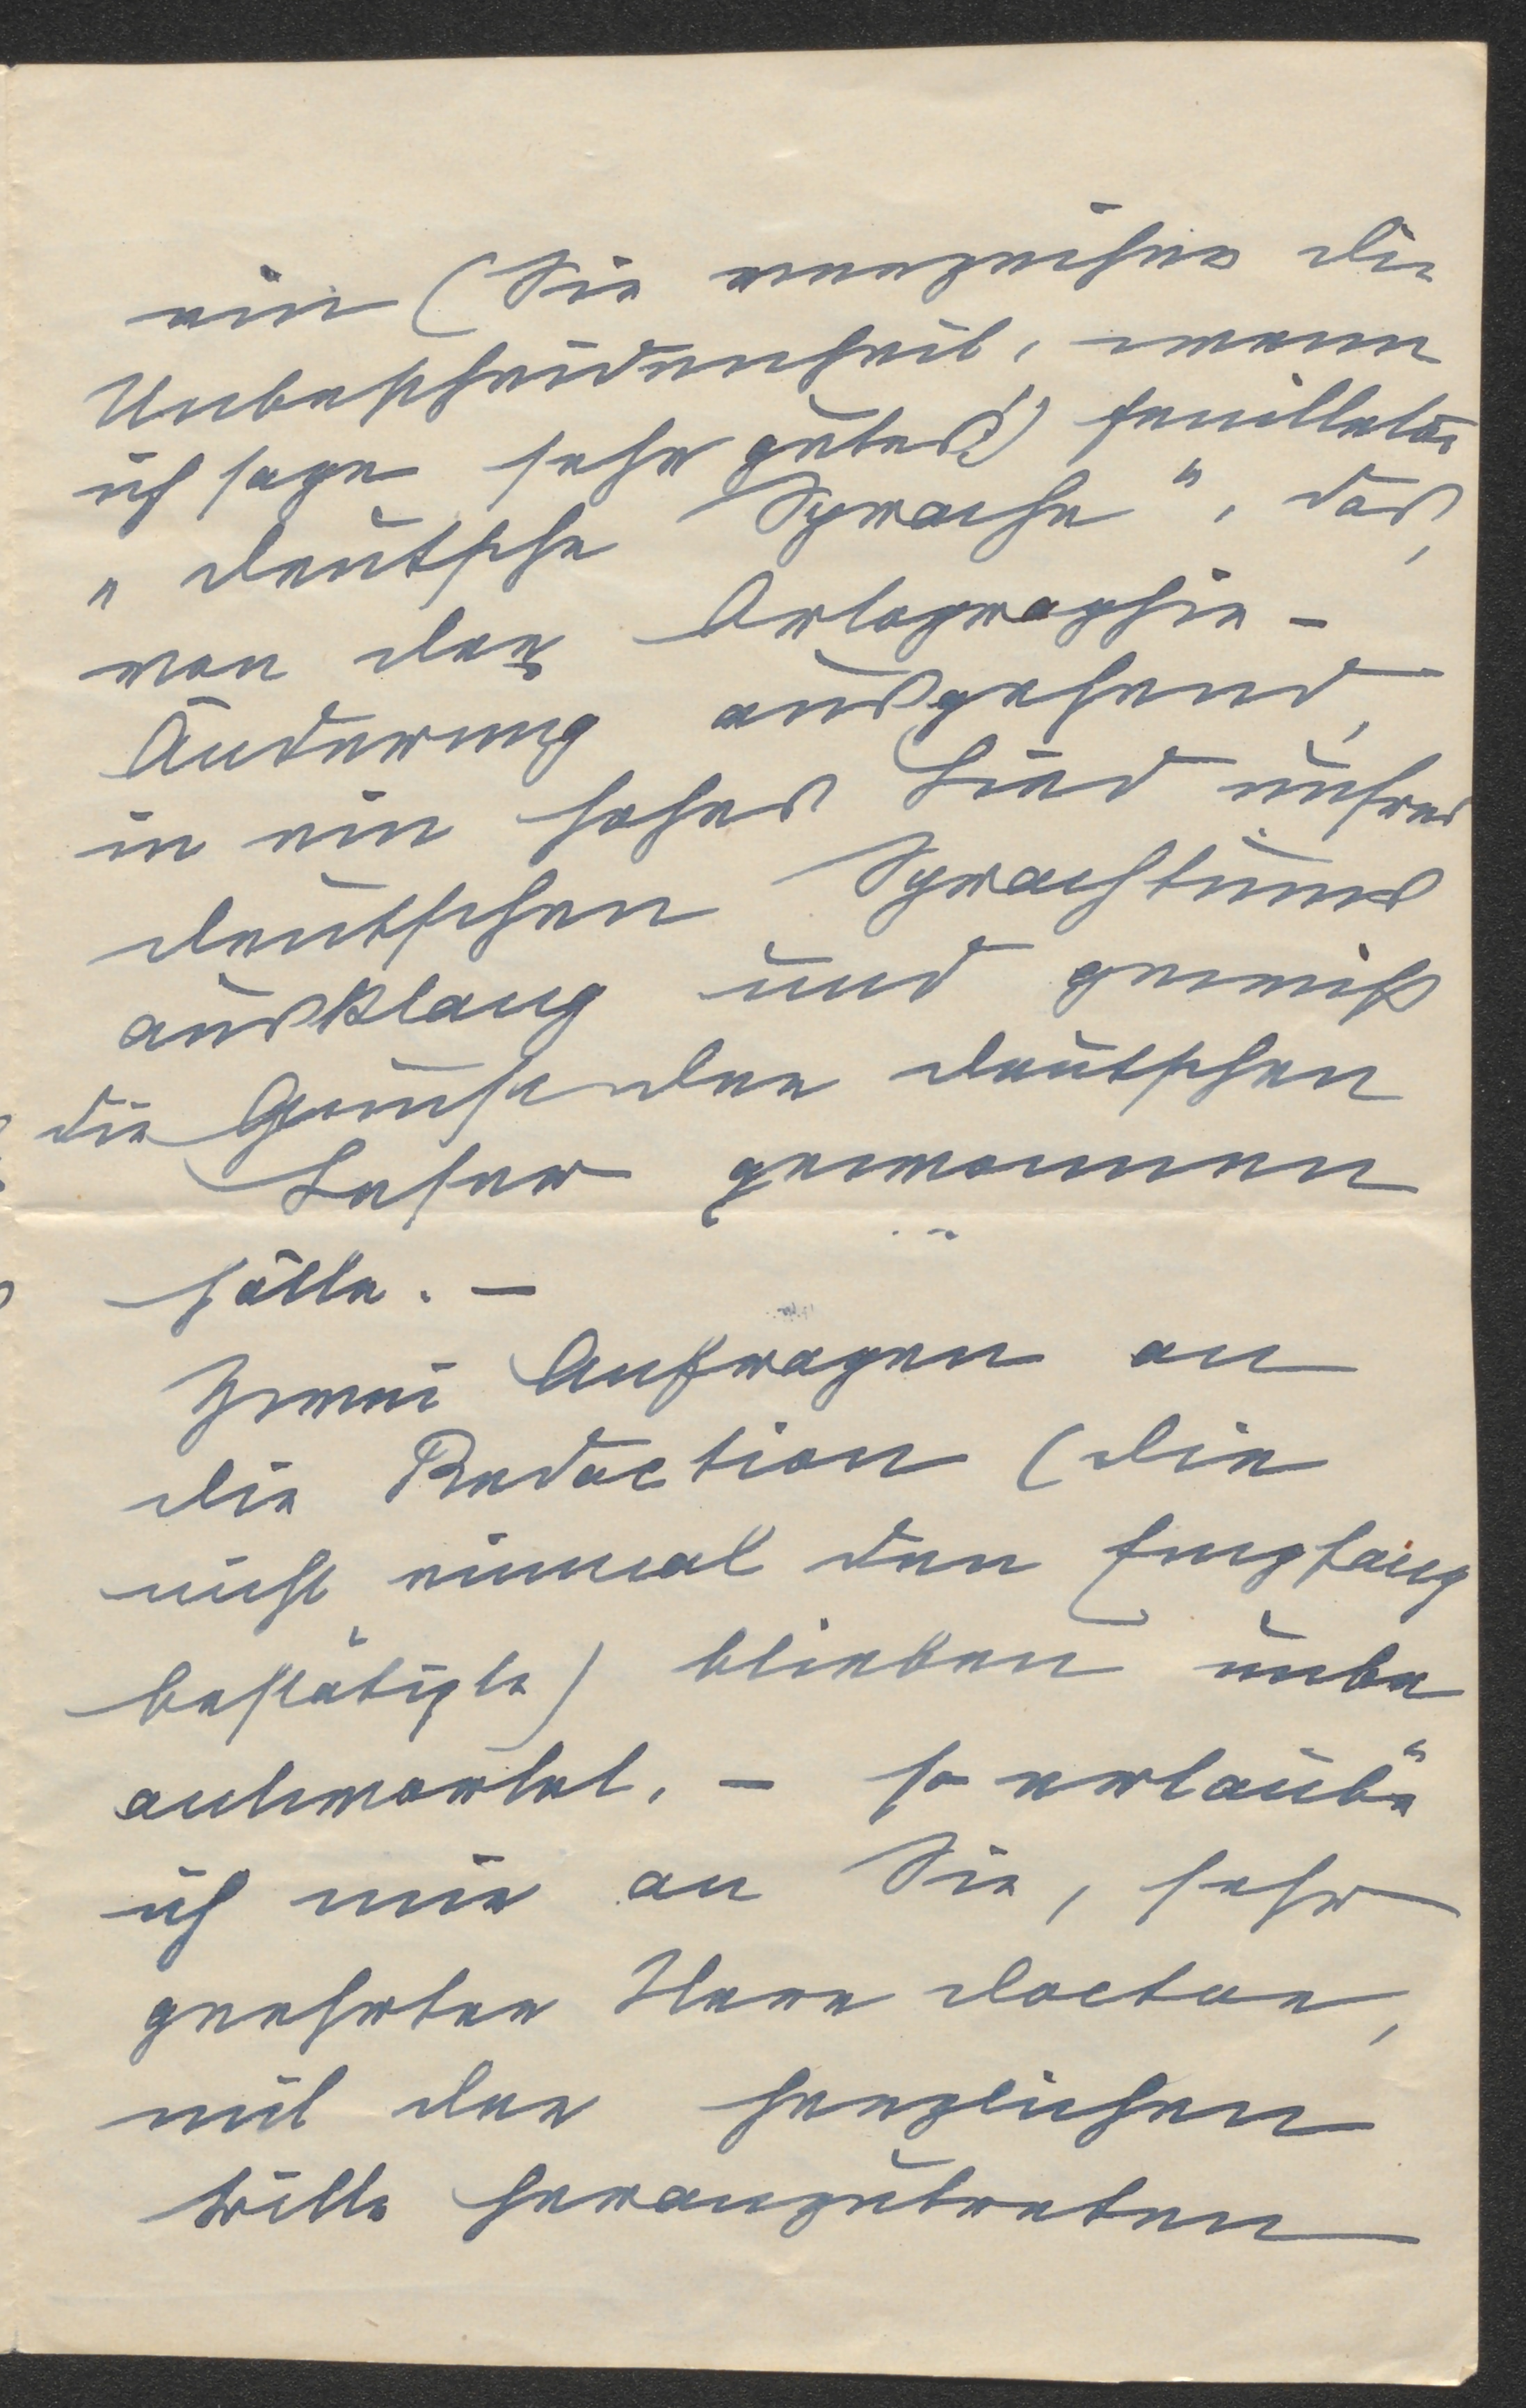 ein (Sie verzeihen die
Unbescheidenheit, wenn
ich sage sehr gutes!) Feuilleton
„Deutsche Sprache“, das,
von der Ortographie-
Änderung ausgehend,
in ein hohes Lied unsres
deutschen Sprachtums
ausklang und gewiß
die Gunst der deutschen
Leser gewonnen
hätte. –
Zwei Anfragen an
die Redaction (die
nicht einmal den Empfang
bestätigte) blieben unbe
antwortet, – so erlaube
ich mir an Sie, sehr
geehrter Herr Doctor,
mit der herzlichen
Bitte heranzutreten